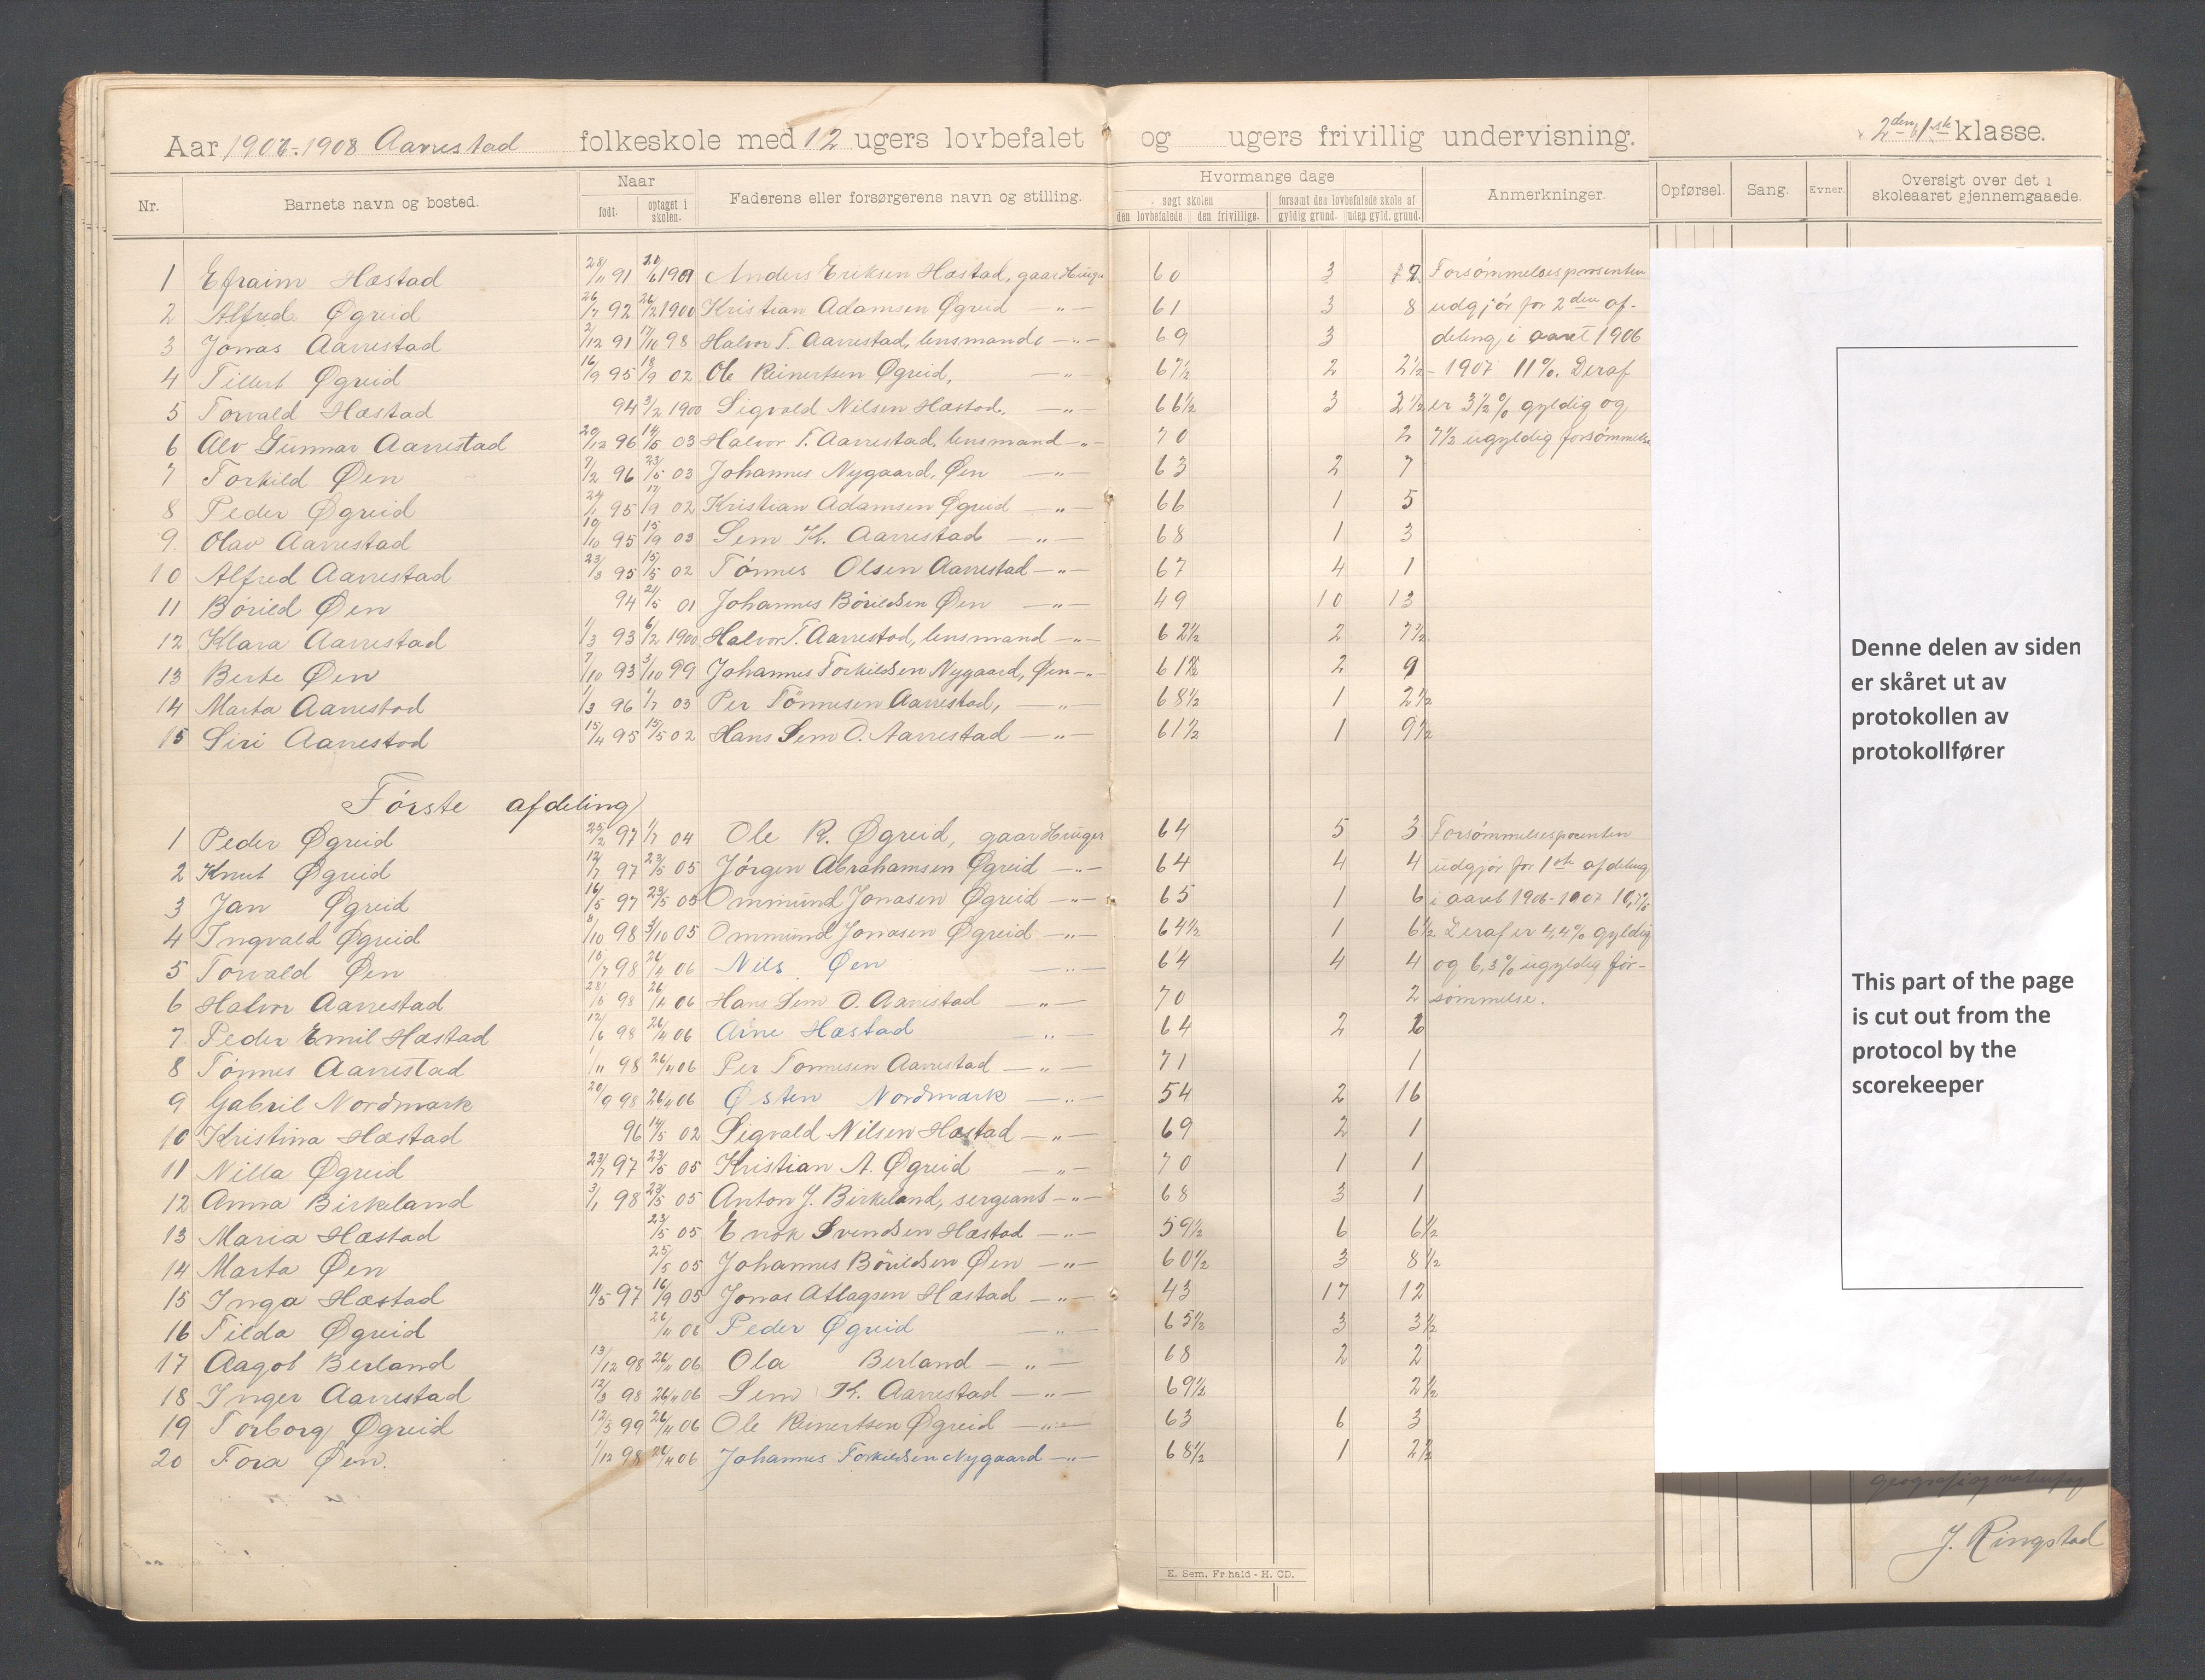 Aar 1907-1908 Aarrestad folkeskole med 12 ugers lovbefalet og ugers frivillig undervisning. 2den 1ste klasse.
Nr. Barnets navn og bosted. Naar født. optaget i skolen. Faderens eller forsørgerens navn og stilling. Hvormange dage søgt skolen den lovbefalede den frivillige. forsømt den lovbefalede skole af gyldig grund. uden gyld. grund. Anmerkninger. Opførsel. Sang. Evner. Oversigt over det i skoleaaret gjennemgaaede.
1 Efraim Hæstad 28/11 91 1901 Anders Eriksen Hæstad, gaar 60 3 Forsømmelsesprosenten
2 Alfred Øgreid 26/7 92 26/2 1900 Kristian Adamsen Øgreid —"— 61 3 8 udgjør for 2den af-
3 Jonas Aarrestad 2/12 91 17/10 98 Halvor T. Aarrestad, lensmand —"— 69 3 deling i aaret 1906
4 Tillert Øgreid 16/9 95 18/9 02 Ole Reinertsen Øgreid, —"— 67½ 2 2½ - 1907 11%. Deraf
5 Torvald Hæstad 94 3/2 1900 Sigvald Nilsen Hæstad, —"— 66½ 3 2½ er 3½% gyldig og
6 Alv Gunnar Aarrestad 20/12 96 14/5 03 Halvor T. Aarrestad, lensmand —"— 70 2 7½ ugyldig forsømmelse
7 Torkild Øen 7/2 96 23/5 03 Johannes Nygaard, Øen —"— 63 2 7
8 Peder Øgreid 24/1 95 17/9 02 Kristian Adamsen Øgreid —"— 66 1 5
9. Olav Aarrestad 10/10 95 15/9 03 Sem K. Aarrestad —"— 68 1 3
10 Alfred Aarrestad 23/3 95 15/5 02 Tønnes Olsen Aarrestad —"— 67 4 1
11 Børild Øen 94 21/5 01 Johannes Børildsen Øen —"— 49 10 13
12 Klara Aarrestad 1/3 93 6/2 1900 Halvor T. Aarrestad, lensmand —"— 62½ 2 7½
13 Berte Øen 7/10 93 3/10 99 Johannes Torkildsen Nygaard, Øen —"— 61½ 2 9
14 Marta Aarrestad 1/3 96 1/7 03 Per Tönnesen Aarrestad, —"— 68½ 1 2½
15 Siri Aarrestad 15/4 95 15/5 02 Hans Sem O. Aarrestad —"— 61½ 1 9½
Første afdeling
1 Peder Øgreid 25/2 97 1/7 04 Ole R. Øgreid, gaar 64 5 3 Forsømmelsesprosenten
2 Knut Øgreid 12/7 97 23/5 05 Jørgen Abrahamsen Øgreid —"— 64 4 4 udgjør for 1ste afdeling
3 Jan Øgreid 16/5 97 23/5 05 Ommund Jonasen Øgreid —"— 65 1 6 i aaret 1906-1907 10,7%
4 Ingvald Øgreid 8/10 98 3/10 05 Ommund Jonasen Øgreid —"— 64½ 1 6½ Deraf er 4,4% gyldig
5 Torvald Øen 16/7 98 26/11 06 Nils Øen —"— 64 4 4 og 6,3% ugyldig for-
6 Halvor Aarrestad 98 26/11 06 Hans Sem O. Aarrestad —"— 70 2 sømmelse.
7 Peder Emil Hæstad 12/6 98 26/11 06 Arne Hæstad —"— 64 2 6
8 Tønnes Aarrestad 1/11 98 26/11 06 Per Tønnesen Aarrestad —"— 71 1
9 Gabril Nordmark 20/9 98 26/11 06 Østen Nordmark —"— 54 2 16
10 Kristina Hæstad 96 14/5 02 Sigvald Nilsen Hæstad —"— 69 2 1
11 Nilla Øgreid 23/7 97 23/5 05 Kristian A. Øgreid —"— 70 1 1
12 Anna Birkeland 3/1 98 23/5 05 Anton J. Birkeland, sergeant —"— 68 3 1
13 Maria Hæstad 23/5 05 Enok Svendsen Hæstad —"— 59½ 6 6½
14 Marta Øen 25/5 05 Johannes Børildsen Øen —"— 60½ 3 8½
15 Inga Hæstad 11/5 97 16/9 05 Jonas Atlagsen Hæstad —"— 43 17 12
16 Tilda Øgreid 26/11 06 Peder Øgreid —"— 65½ 3 3½
17 Aagot Berland 13/12 98 26/11 06 Ola Berland —"— 68 2 2
18 Inger Aarrestad 12/3 98 26/11 06 Sem K. Aarrestad —"— 69½ 2½
19 Torborg Øgreid 12/5 99 26/11 06 Ole Reinertsen Øgreid —"— 63 6 3
20 Tora Øen. 1/12 98 26/11 06 Johannes Torkildsen Nygaard —"— 68½ 1 2½
E. Sem. Fr.hald - H. CD.
Denne delen av siden
er skåret ut av
protokollen av
protokollfører
This part of the page
is cut out from the
protocol by the
scorekeeper
geografi og naturfag
J. Ringstad